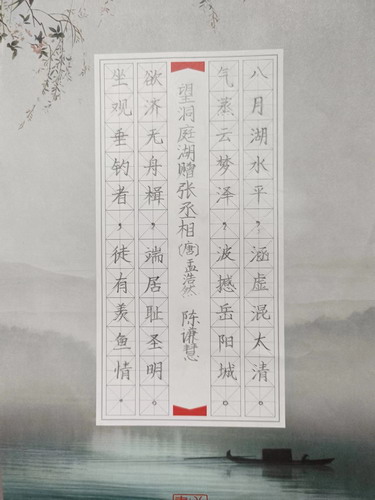 八月湖水平,涵虚混太清。
气蒸云梦泽,波撼岳阳城。
望洞庭湖赠张丞相(唐)孟浩然 陈谦慧
欲济无舟楫,端居耻圣明。
坐观垂钓者,徒有羡鱼情。